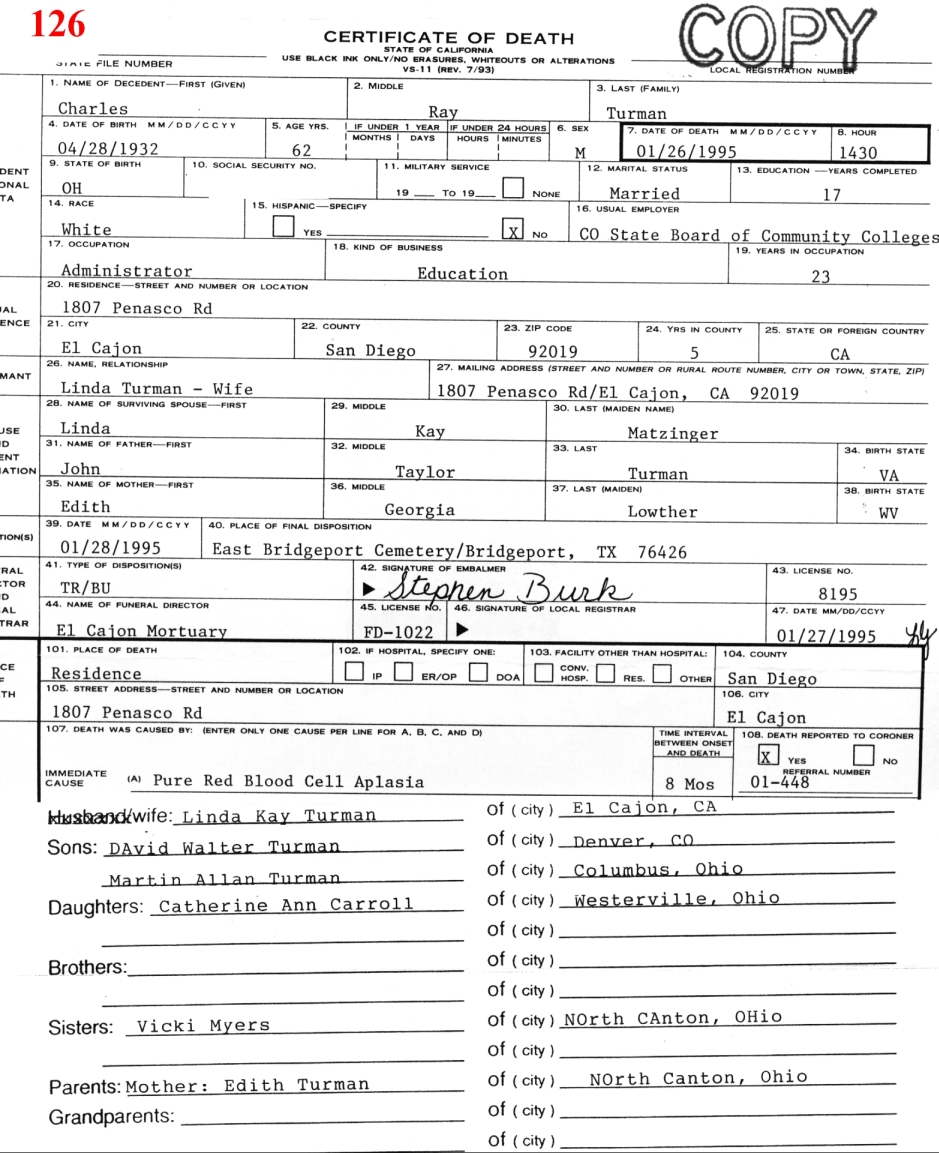 126
COPY
CERTIFICATE OF DEATH
STATE OF CALIFORNIA
USE BLACK INK ONLY/NO ERASURES, WHITEOUTS OR ALTERATIONS
VS-11 (REV. 7/93)
STATE FILE NUMBER LOCAL REGISTRATION NUMBER
1. NAME OF DECEDENT—FIRST (GIVEN) 2. MIDDLE 3. LAST (FAMILY)
Charles Ray Turman
4. DATE OF BIRTH MM/DD/CCYY 5. AGE YRS. IF UNDER 1 YEAR IF UNDER 24 HOURS 6. SEX 7. DATE OF DEATH MM/DD/CCYY 8. HOUR
MONTHS DAYS HOURS MINUTES
04/28/1932 62 M 01/26/1995 1430
DENT
ONAL
TA
9. STATE OF BIRTH 10. SOCIAL SECURITY NO. 11. MILITARY SERVICE 12. MARITAL STATUS 13. EDUCATION —YEARS COMPLETED
OH 19 TO 19 NONE Married 17
14. RACE 15. HISPANIC—SPECIFY 16. USUAL EMPLOYER
White YES X NO CO State Board of Community Colleges
17. OCCUPATION 18. KIND OF BUSINESS 19. YEARS IN OCCUPATION
Administrator Education 23
20. RESIDENCE—STREET AND NUMBER OR LOCATION
1807 Penasco Rd
UAL
ENCE
21. CITY 22. COUNTY 23. ZIP CODE 24. YRS IN COUNTY 25. STATE OR FOREIGN COUNTRY
El Cajon San Diego 92019 5 CA
MANT
26. NAME, RELATIONSHIP 27. MAILING ADDRESS (STREET AND NUMBER OR RURAL ROUTE NUMBER, CITY OR TOWN, STATE, ZIP)
Linda Turman - Wife 1807 Penasco Rd/El Cajon, CA 92019
28. NAME OF SURVIVING SPOUSE—FIRST 29. MIDDLE 30. LAST (MAIDEN NAME)
Linda Kay Matzinger
USE
D
ENT
IATION
31. NAME OF FATHER—FIRST 32. MIDDLE 33. LAST 34. BIRTH STATE
John Taylor Turman VA
35. NAME OF MOTHER—FIRST 36. MIDDLE 37. LAST (MAIDEN) 38. BIRTH STATE
Edith Georgia Lowther WV
TION(S)
39. DATE MM/DD/CCYY 40. PLACE OF FINAL DISPOSITION
01/28/1995 East Bridgeport Cemetery/Bridgeport, TX 76426
RAL
CTOR
D
AL
TRAR
41. TYPE OF DISPOSITION(S) 42. SIGNATURE OF EMBALMER 43. LICENSE NO.
TR/BU Stephen Burk 8195
44. NAME OF FUNERAL DIRECTOR 45. LICENSE NO. 46. SIGNATURE OF LOCAL REGISTRAR 47. DATE MM/DD/CCYY
El Cajon Mortuary FD-1022 01/27/1995
CE
F
TH
101. PLACE OF DEATH 102. IF HOSPITAL, SPECIFY ONE: 103. FACILITY OTHER THAN HOSPITAL: 104. COUNTY
Residence IP ER/OP DOA CONV. HOSP. RES. OTHER San Diego
105. STREET ADDRESS—STREET AND NUMBER OR LOCATION 106. CITY
1807 Penasco Rd El Cajon
107. DEATH WAS CAUSED BY: (ENTER ONLY ONE CAUSE PER LINE FOR A, B, C, AND D) TIME INTERVAL BETWEEN ONSET AND DEATH 108. DEATH REPORTED TO CORONER
X YES NO
REFERRAL NUMBER
IMMEDIATE CAUSE (A) Pure Red Blood Cell Aplasia 8 Mos 01-448
Husband/wife: Linda Kay Turman of ( city ) El Cajon, CA
Sons: DAvid Walter Turman of ( city ) Denver, CO
Martin Allan Turman of ( city ) Columbus, Ohio
Daughters: Catherine Ann Carroll of ( city ) Westerville, Ohio
of ( city )
Brothers: of ( city )
of ( city )
Sisters: Vicki Myers of ( city ) NOrth CAnton, OHio
of ( city )
Parents: Mother: Edith Turman of ( city ) NOrth Canton, Ohio
Grandparents: of ( city )
of ( city )